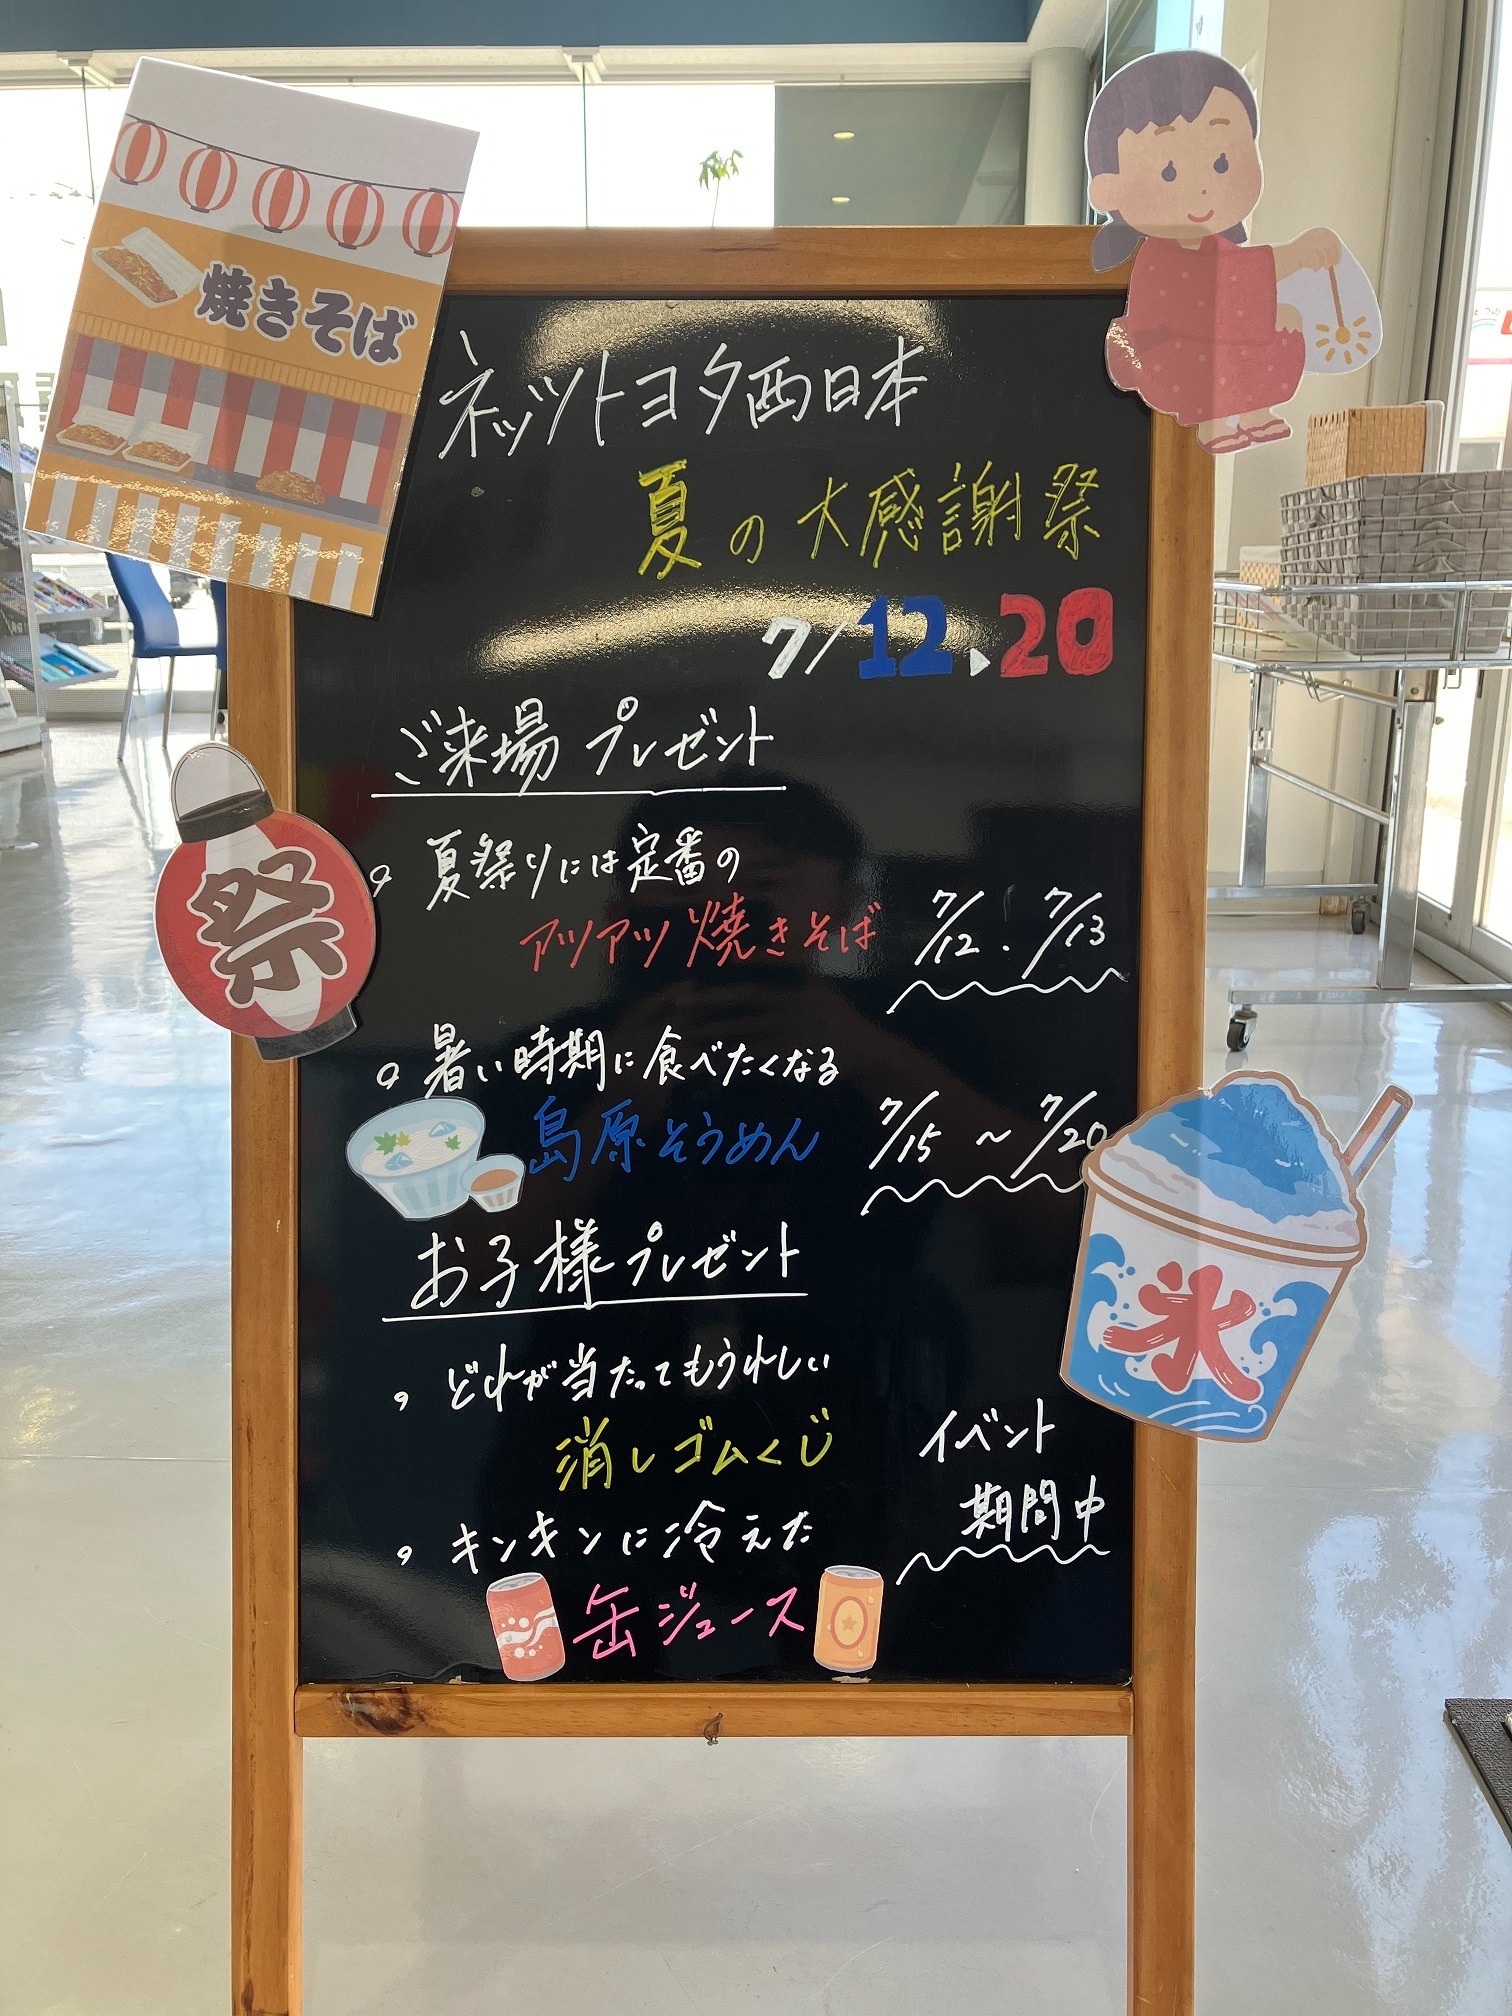 焼きそば
ネッツトヨタ西日本
夏の大感謝祭
7/12▶20
ご来場プレゼント
祭
夏祭りには定番の
アツアツ焼きそば 7/12．7/13
暑い時期に食べたくなる
島原そうめん 7/15～7/20
氷
お子様プレゼント
どれが当たってもうれしい
消しゴムくじ
キンキンに冷えた
缶ジュース
イベント
期間中